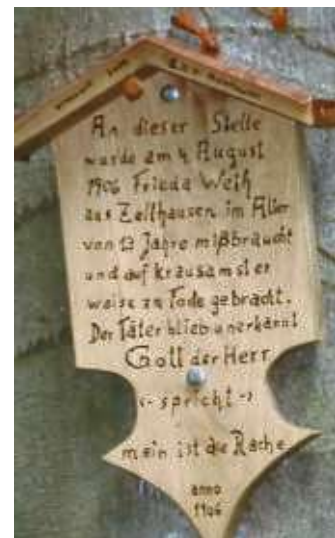 An dieser Stelle
wurde am 4 August
1906 Frieda Weih
aus Zellhausen im Alter
von 13 Jahre mißbraucht
und auf krausamster
weise zu Tode gebracht.
Der Täter blieb unerkannt
Gott der Herr
<- spricht ->
mein ist die Rache
anno
1906